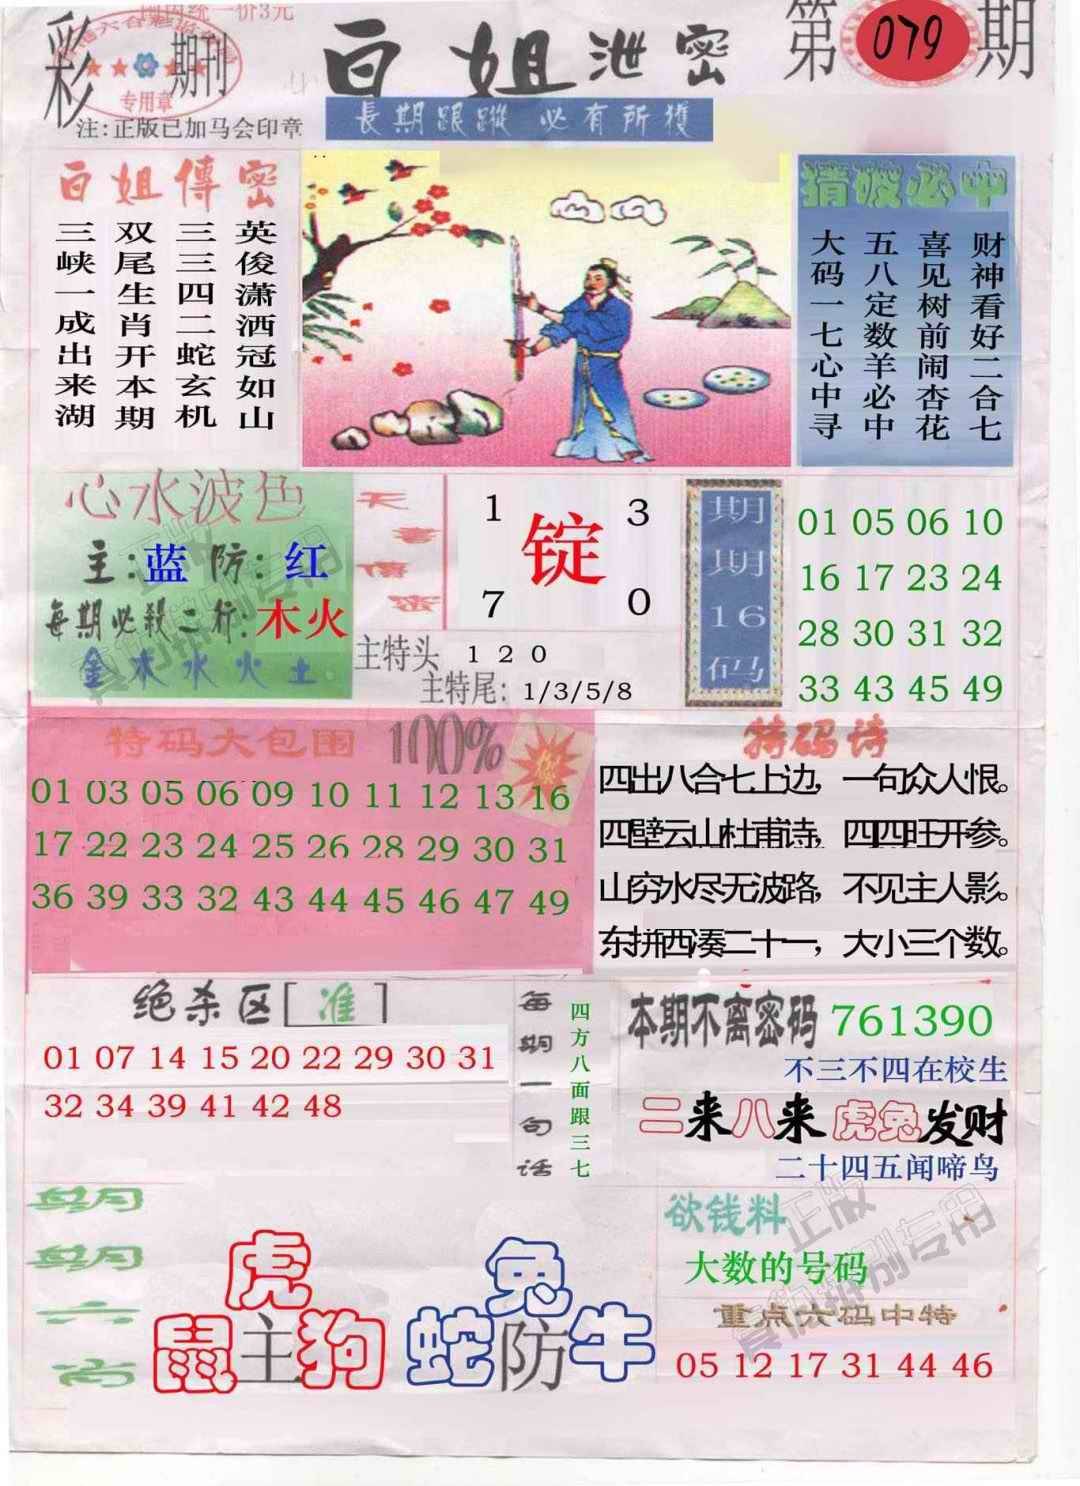 国统一价3元
彩 期刊
专用章
注:正版已加马会印章
白姐泄密
第079期
長期跟蹤 必有所獲
白姐傳密
英俊潇洒冠如山
三三四二蛇玄机
双尾生肖开本期
三峡一成出来湖
猜破必中
财神看好二合七
喜见树前闹杏花
五八定数羊必中
大码一七心中寻
心水波色
主:蓝 防:红
每期必殺二行:木火
金木水火土
天書傳密
1 3
锭
7 0
主特头 1 2 0
主特尾: 1/3/5/8
期期16码
01 05 06 10
16 17 23 24
28 30 31 32
33 43 45 49
特码大包围 100%
01 03 05 06 09 10 11 12 13 16
17 22 23 24 25 26 28 29 30 31
36 39 33 32 43 44 45 46 47 49
特码诗
四出八合七上边，一句众人恨。
四壁云山杜甫诗，四四旺开参。
山穷水尽无波路，不见主人影。
东拼西凑二十一，大小三个数。
绝杀区[准]
01 07 14 15 20 22 29 30 31
32 34 39 41 42 48
每期一句话
四方八面跟三七
本期不离密码 761390
不三不四在校生
二来八来 虎兔发财
二十四五闻啼鸟
期期六肖
虎
鼠主狗
兔
蛇防牛
欲钱料
大数的号码
重点六码中特
05 12 17 31 44 46